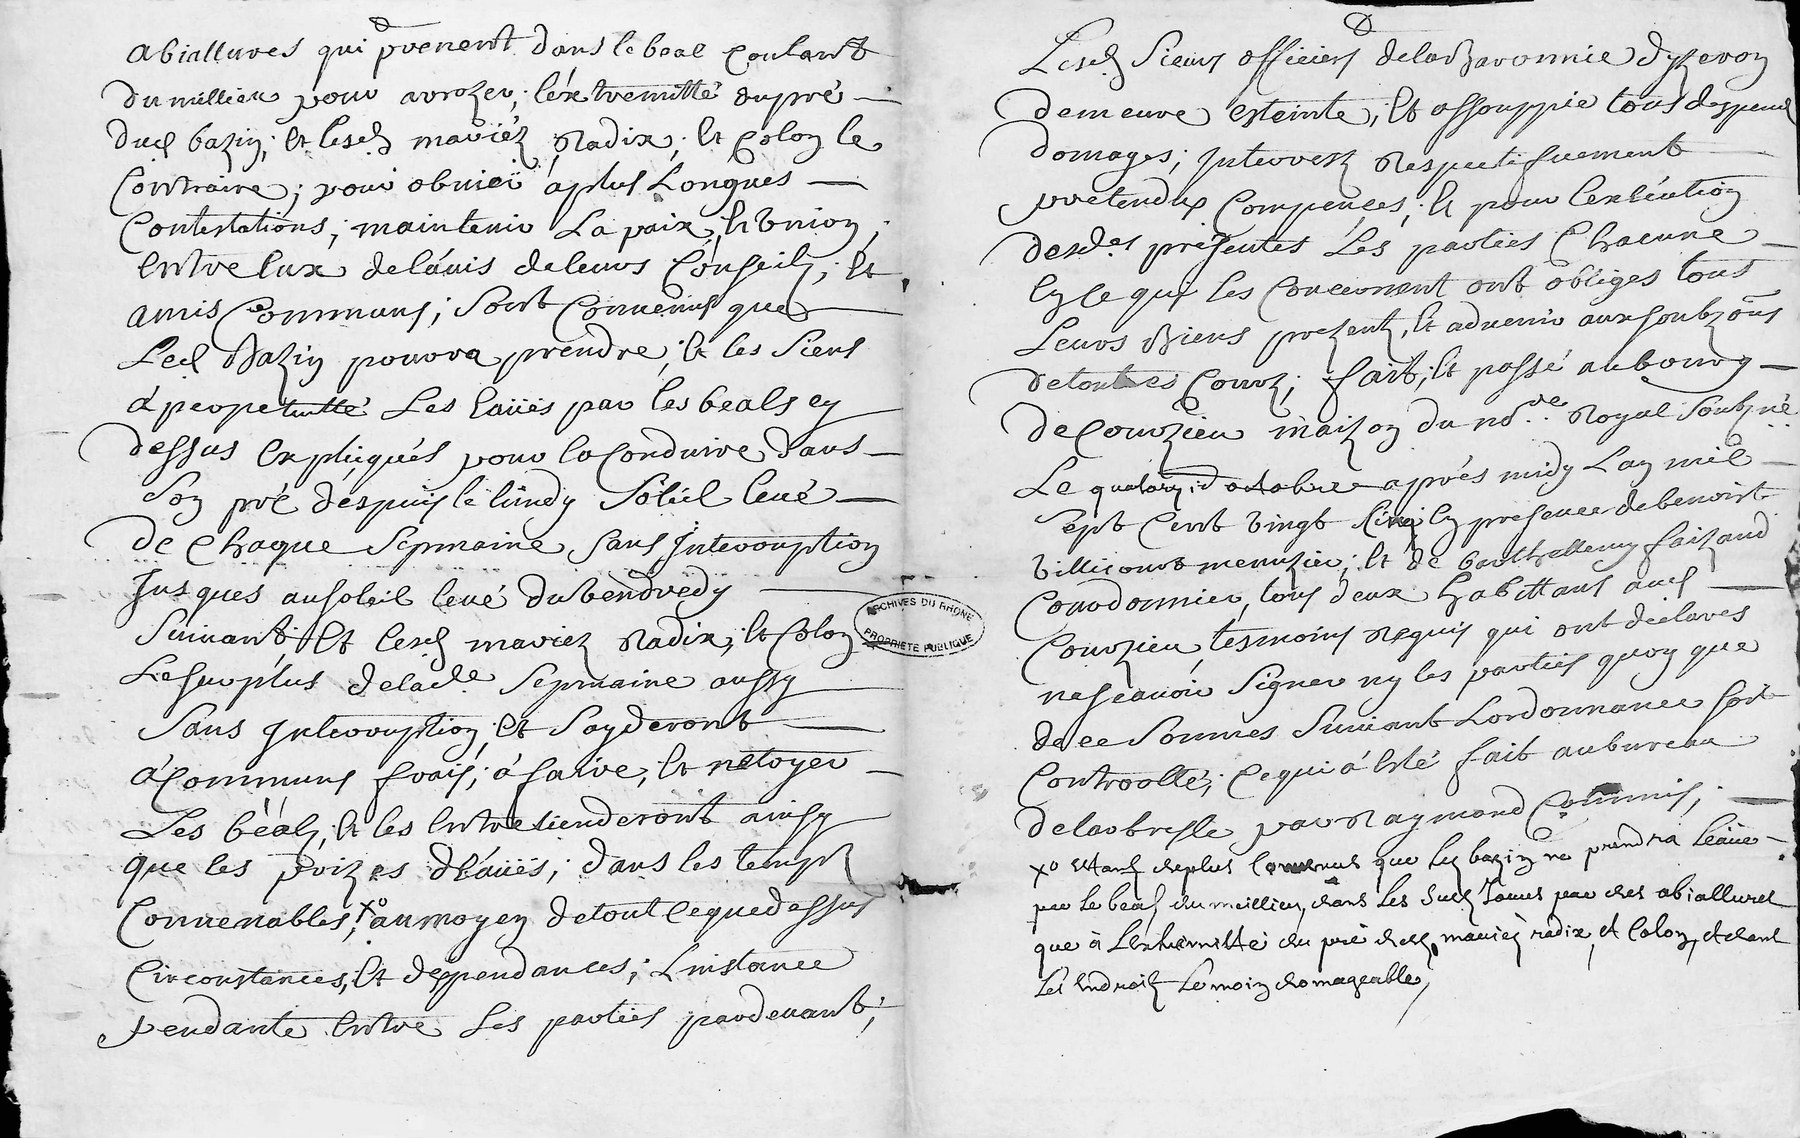 abiallures qui prenent dans le beal Coulant
du millieu pour arrozer, l'extremitté du pré
dud bazin, Et lesd mariéz Radix, Et Colon le
Contraire; pour obvier à plus Longues
Contestations, maintenir La paix, Et Union,
Entre Eux de l'avis de leurs Conseilz, Et
amis Communs, Sont Convenus que
Led Bazin pourra prendre, Et les Siens
à perpetuitté Les Eaües par les beals cy
dessus Expliqués pour la Conduire dans
Son pré despuis le lundy Soleil levé
de Chaque Sepmaine, Sans Interruption
Jusques au soleil levé du vendredy
Suivant Et lesd mariez Radix, Et Colon
Le surplus de lade Sepmaine aussy
Sans Interruption, Et S'ayderont
à Communs frais, à faire, Et netoyer
Les béals, Et les Entretienderont ainsy
que les prizes d'Eaües, dans les tempz
Convenables, Xo au moyen de tout Ce que dessus
Circonstances, Et deppendances, L'instance
pendante Entre Les parties pardevant,
Lesd Sieurs officiers de la Baronnie d'yzeron
demeure Esteinte, Et assouppie tous despens
domages, Interrestz Respectifvement
pretendus Compencés, Et pour L'exécution
desdes présentes Les parties Chacune
En Ce qui les Concernent ont obligés tous
Leurs Biens presentz, Et advenir aux soubzons
de toutes Courz, fait, Et passé au bourg
de Courzieu maizon du nore Royal Soubzné
Le quatorz octobre après midy L'an mil
Sept Cent vingt Cinq En presence de benoist
menuzier, Et de barthellemy faizand
Courdonnier, tous deux habittans aud
Courzieu, tesmoins Requis qui ont déclarés
ne scavoir Signer ny les parties quoy que
de ce Sommés Suivant L'ordonnance soit
Controollé, Ce qui à Esté fait au bureau
de larbresle par Raymond Commis,
Xo Etant de plus Convenus que led bazin ne prendra L'eaüe
par Le beal du meillieu, dans Les Sud Jours par des abiallures
que à L'extremitté du pré desd mariéz radix, Et Colon, et dans
Les Endroitz Le moin domageable,
ARCHIVES DU RHONE
PROPRIETE PUBLIQUE